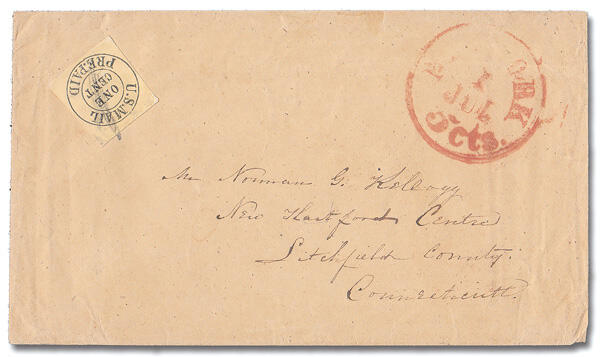 U.S.MAIL
ONE
CENT
PRE.PAID
NEW YORK
1
JUL
5cts.
Mr Norman G. Kellogg
New Hartford Centre
Litchfield County.
Connecticutt.